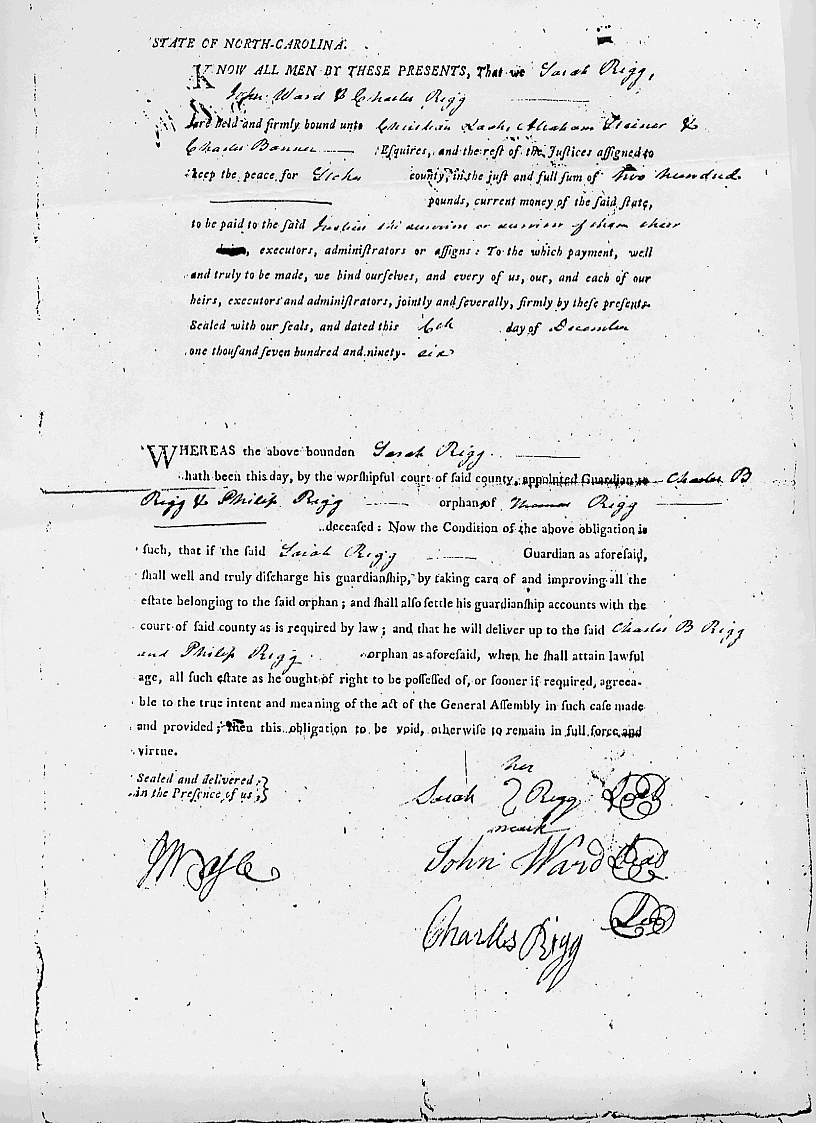 STATE OF NORTH-CAROLINA.
KNOW ALL MEN BY THESE PRESENTS, That we Sarah Rigg,
John Ward & Charles Rigg
are held and firmly bound unto Christian Lash, Abraham Steiner &
Charles Banner Esquires, and the rest of the Justices assigned to
keep the peace for Stokes county, in the just and full sum of two hundred
pounds, current money of the said state,
to be paid to the said Justices the survivors or survivor of them their
executors, administrators or assigns: To the which payment, well
and truly to be made, we bind ourselves, and every of us, our, and each of our
heirs, executors and administrators, jointly and severally, firmly by these presents.
Sealed with our seals, and dated this 6th day of December
one thousand seven hundred and ninety- six
WHEREAS the above bounden Sarah Rigg
hath been this day, by the worshipful court of said county, appointed Guardian to Charles B
Rigg & Philip Rigg orphan of Thomas Rigg
deceased: Now the Condition of the above obligation is
such, that if the said Sarah Rigg Guardian as aforesaid,
shall well and truly discharge his guardianship, by taking care of and improving all the
estate belonging to the said orphan; and shall also settle his guardianship accounts with the
court of said county as is required by law; and that he will deliver up to the said Charles B Rigg
and Philip Rigg orphan as aforesaid, when he shall attain lawful
age, all such estate as he ought of right to be possessed of, or sooner if required, agreea-
ble to the true intent and meaning of the act of the General Assembly in such case made
and provided; then this obligation to be void, otherwise to remain in full force and
virtue.
Sealed and delivered
in the Presence of us,
her
Sarah Rigg Seal
mark
John Ward Seal
Charles Rigg Seal